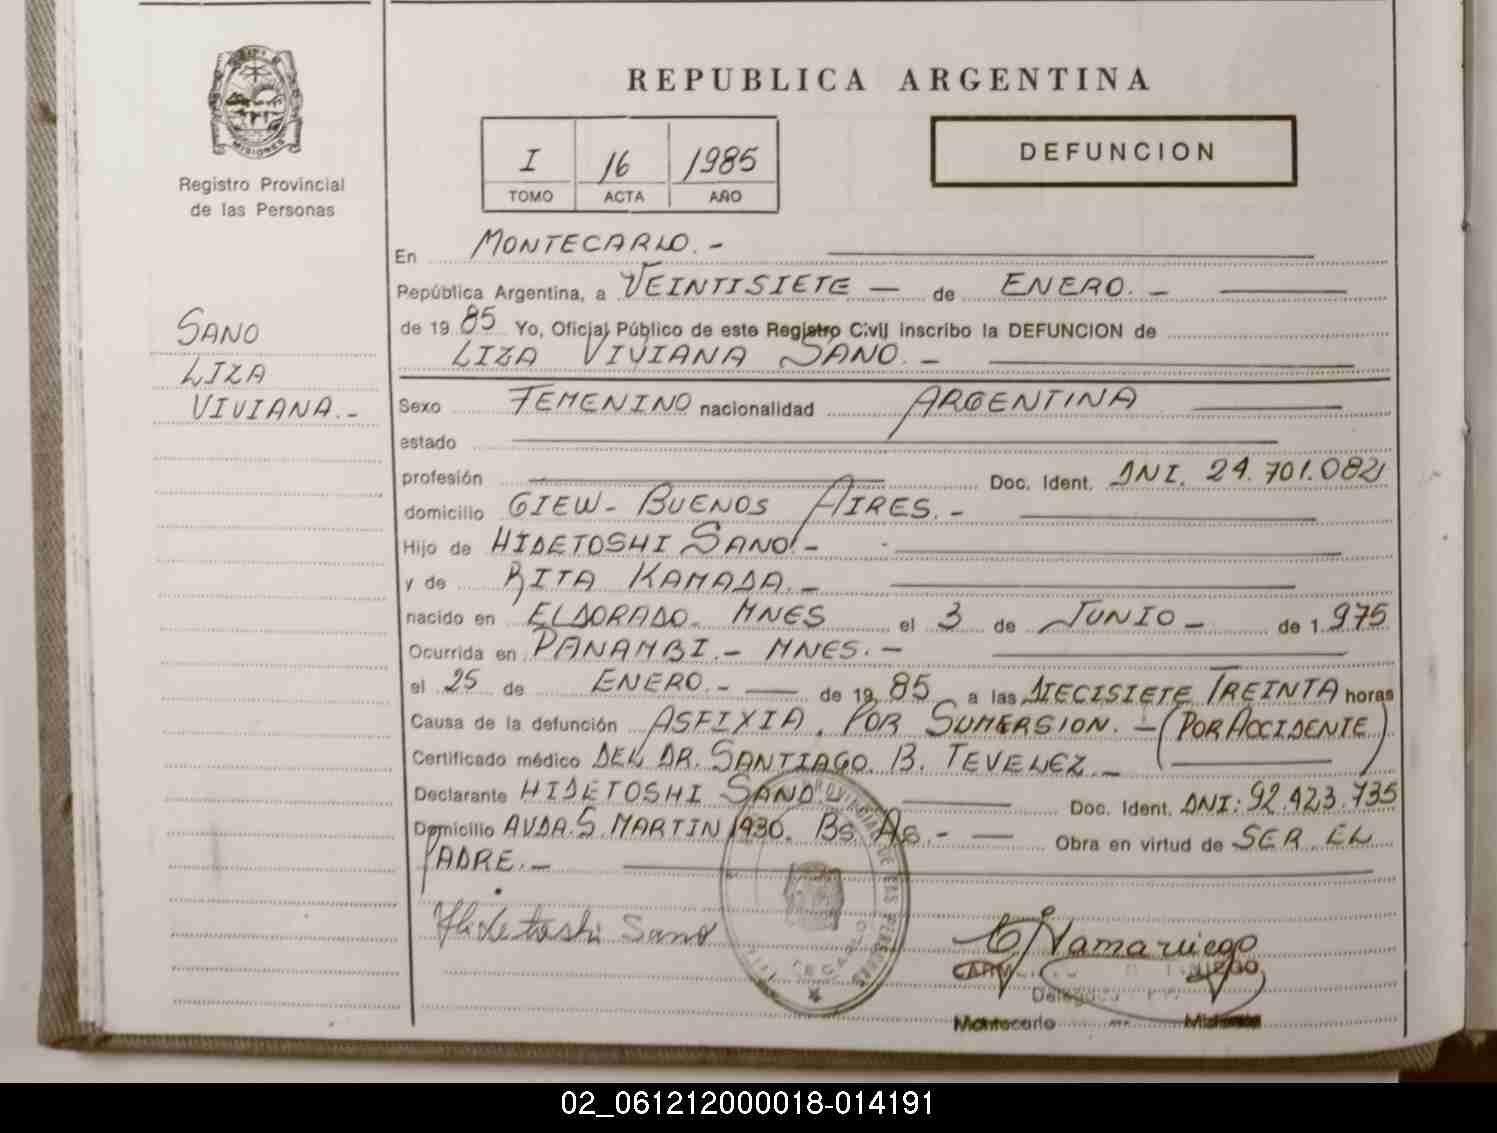 MISIONES
Registro Provincial
de las Personas
SANO
LIZA
VIVIANA.-
REPUBLICA ARGENTINA
I 16 1985
TOMO ACTA AÑO
DEFUNCION
En MONTECARLO.-
República Argentina, a VEINTISIETE — de ENERO.-
de 1985 Yo, Oficial Público de este Registro Civil inscribo la DEFUNCION de
LIZA VIVIANA SANO.-
Sexo FEMENINO nacionalidad ARGENTINA
estado
profesión Doc. Ident. DNI. 24.701.082
domicilio GIEW- BUENOS AIRES.-
Hijo de HIDETOSHI SANO.-
y de RITA KAMADA.-
nacido en ELDORADO. MNES el 3 de JUNIO - de 1.975
Ocurrida en PANAMBI.- MNES.-
el 25 de ENERO.- de 1985 a las DIECISIETE TREINTA horas
Causa de la defunción ASFIXIA, POR SUMERSION.- (POR ACCIDENTE)
Certificado médico DEL DR. SANTIAGO. B. TEVELEZ.-
Declarante HIDETOSHI SANO.- Doc. Ident. DNI: 92.423.735
Domicilio AVDA. S. MARTIN 1930. Bs. As.- Obra en virtud de SER EL
PADRE.-
Hidetoshi Sano
Montecarlo Misiones
02_061212000018-014191